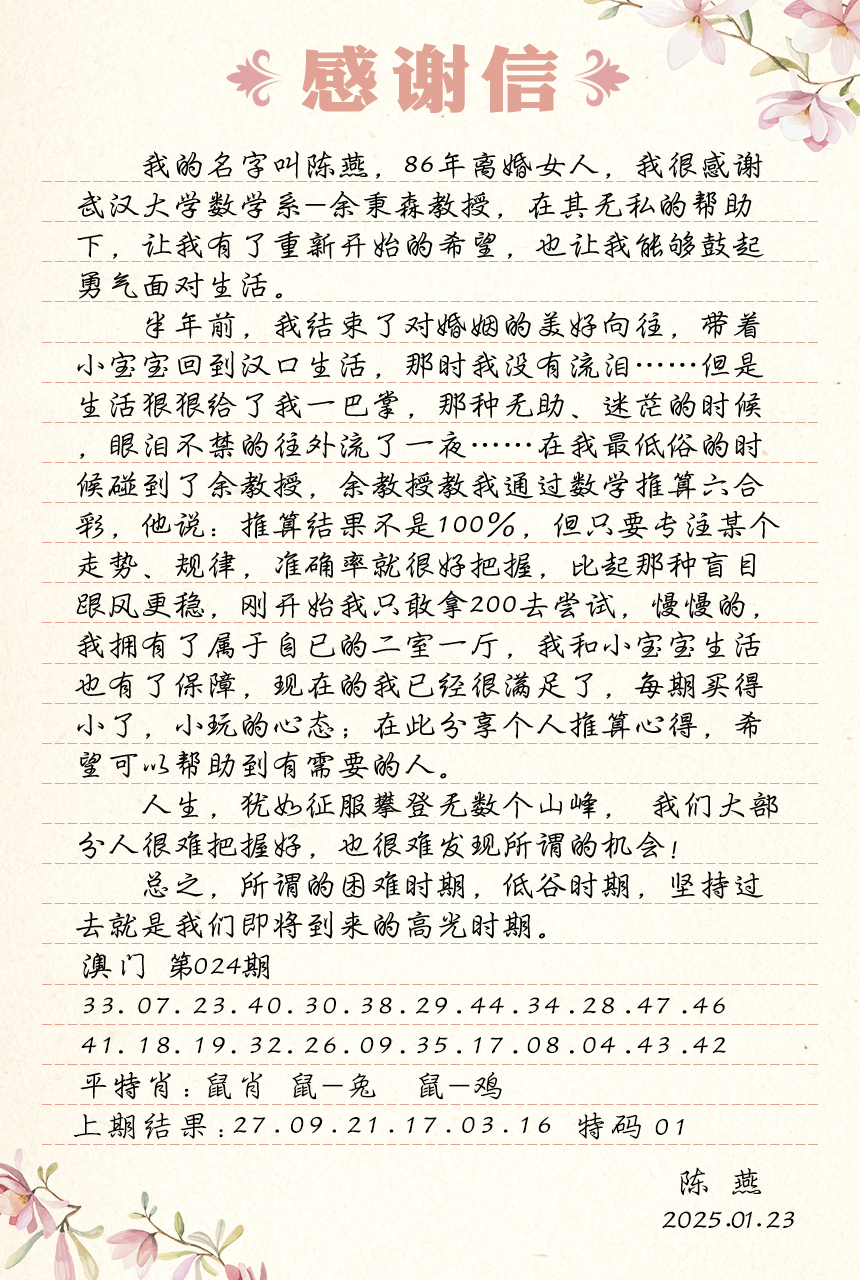 感谢信
我的名字叫陈燕，86年离婚女人，我很感谢
武汉大学数学系—余秉森教授，在其无私的帮助
下，让我有了重新开始的希望，也让我能够鼓起
勇气面对生活。
半年前，我结束了对婚姻的美好向往，带着
小宝宝回到汉口生活，那时我没有流泪……但是
生活狠狠给了我一巴掌，那种无助、迷茫的时候
，眼泪不禁的往外流了一夜……在我最低俗的时
候碰到了余教授，余教授教我通过数学推算六合
彩，他说：推算结果不是100%，但只要专注某个
走势、规律，准确率就很好把握，比起那种盲目
跟风更稳，刚开始我只敢拿200去尝试，慢慢的，
我拥有了属于自已的二室一厅，我和小宝宝生活
也有了保障，现在的我已经很满足了，每期买得
小了，小玩的心态；在此分享个人推算心得，希
望可以帮助到有需要的人。
人生，犹如征服攀登无数个山峰， 我们大部
分人很难把握好，也很难发现所谓的机会！
总之，所谓的困难时期，低谷时期，坚持过
去就是我们即将到来的高光时期。
澳门 第024期
33.07.23.40.30.38.29.44.34.28.47.46
41.18.19.32.26.09.35.17.08.04.43.42
平特肖：鼠肖 鼠—兔 鼠—鸡
上期结果：27.09.21.17.03.16 特码 01
陈 燕
2025.01.23